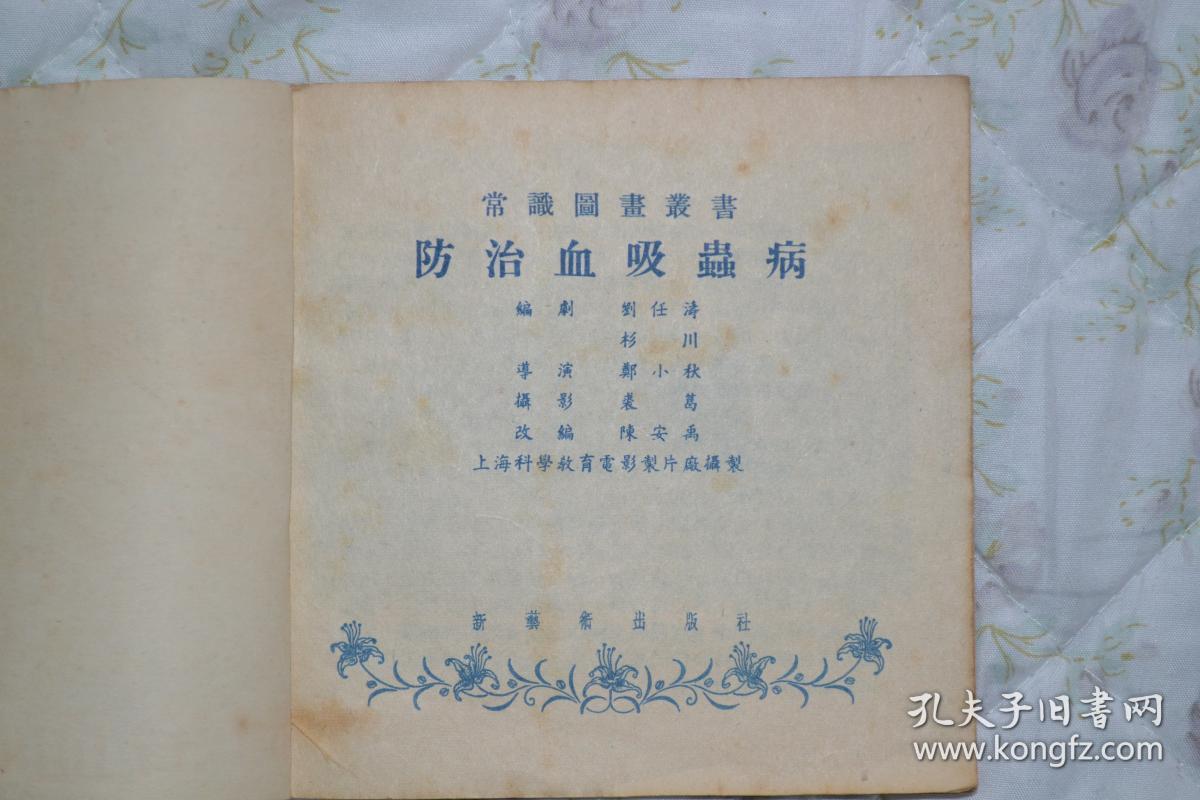 常識圖畫叢書
防治血吸蟲病
編劇 劉任濤
杉川
導演 鄭小秋
攝影 裘葛
改編 陳安禹
上海科學教育電影製片廠攝製
新藝術出版社
孔夫子旧书网
www.kongfz.com